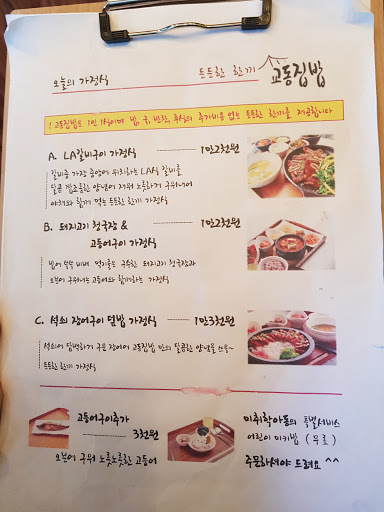 오늘의 가정식
든든한 한끼 교동집밥
! 교동집밥은 1인 1식이며 밥, 국, 반찬, 후식의 추가비용 없는 든든한 한끼를 제공합니다
A. LA갈비구이 가정식 1만2천원
갈비중 가장 중앙에 위치하는 LA식 갈비를
달콤 짭조롬한 양념에 재워 노릇하게 구워내어
야채와 함께 먹는 든든한 한끼 가정식
B. 돼지고기 청국장 & 1만2천원
고등어구이 가정식
밥에 쓱쓱 비벼 먹기좋은 구수한 돼지고기 청국장과
오븐에 구워내는 고등어와 함께하는 가정식
C. 석쇠 장어구이 덮밥 가정식 1만3천원
석쇠에 담백하게 구운 장어에 교동집밥 만의 달콤한 양념을 쓰윽~
든든한 한끼 가정식
고등어구이추가
3천원
오븐에 구워 노릇노릇한 고등어
미취학아동의 특별서비스
어린이 미키밥 (무료)
주문하셔야 드려요 ^^